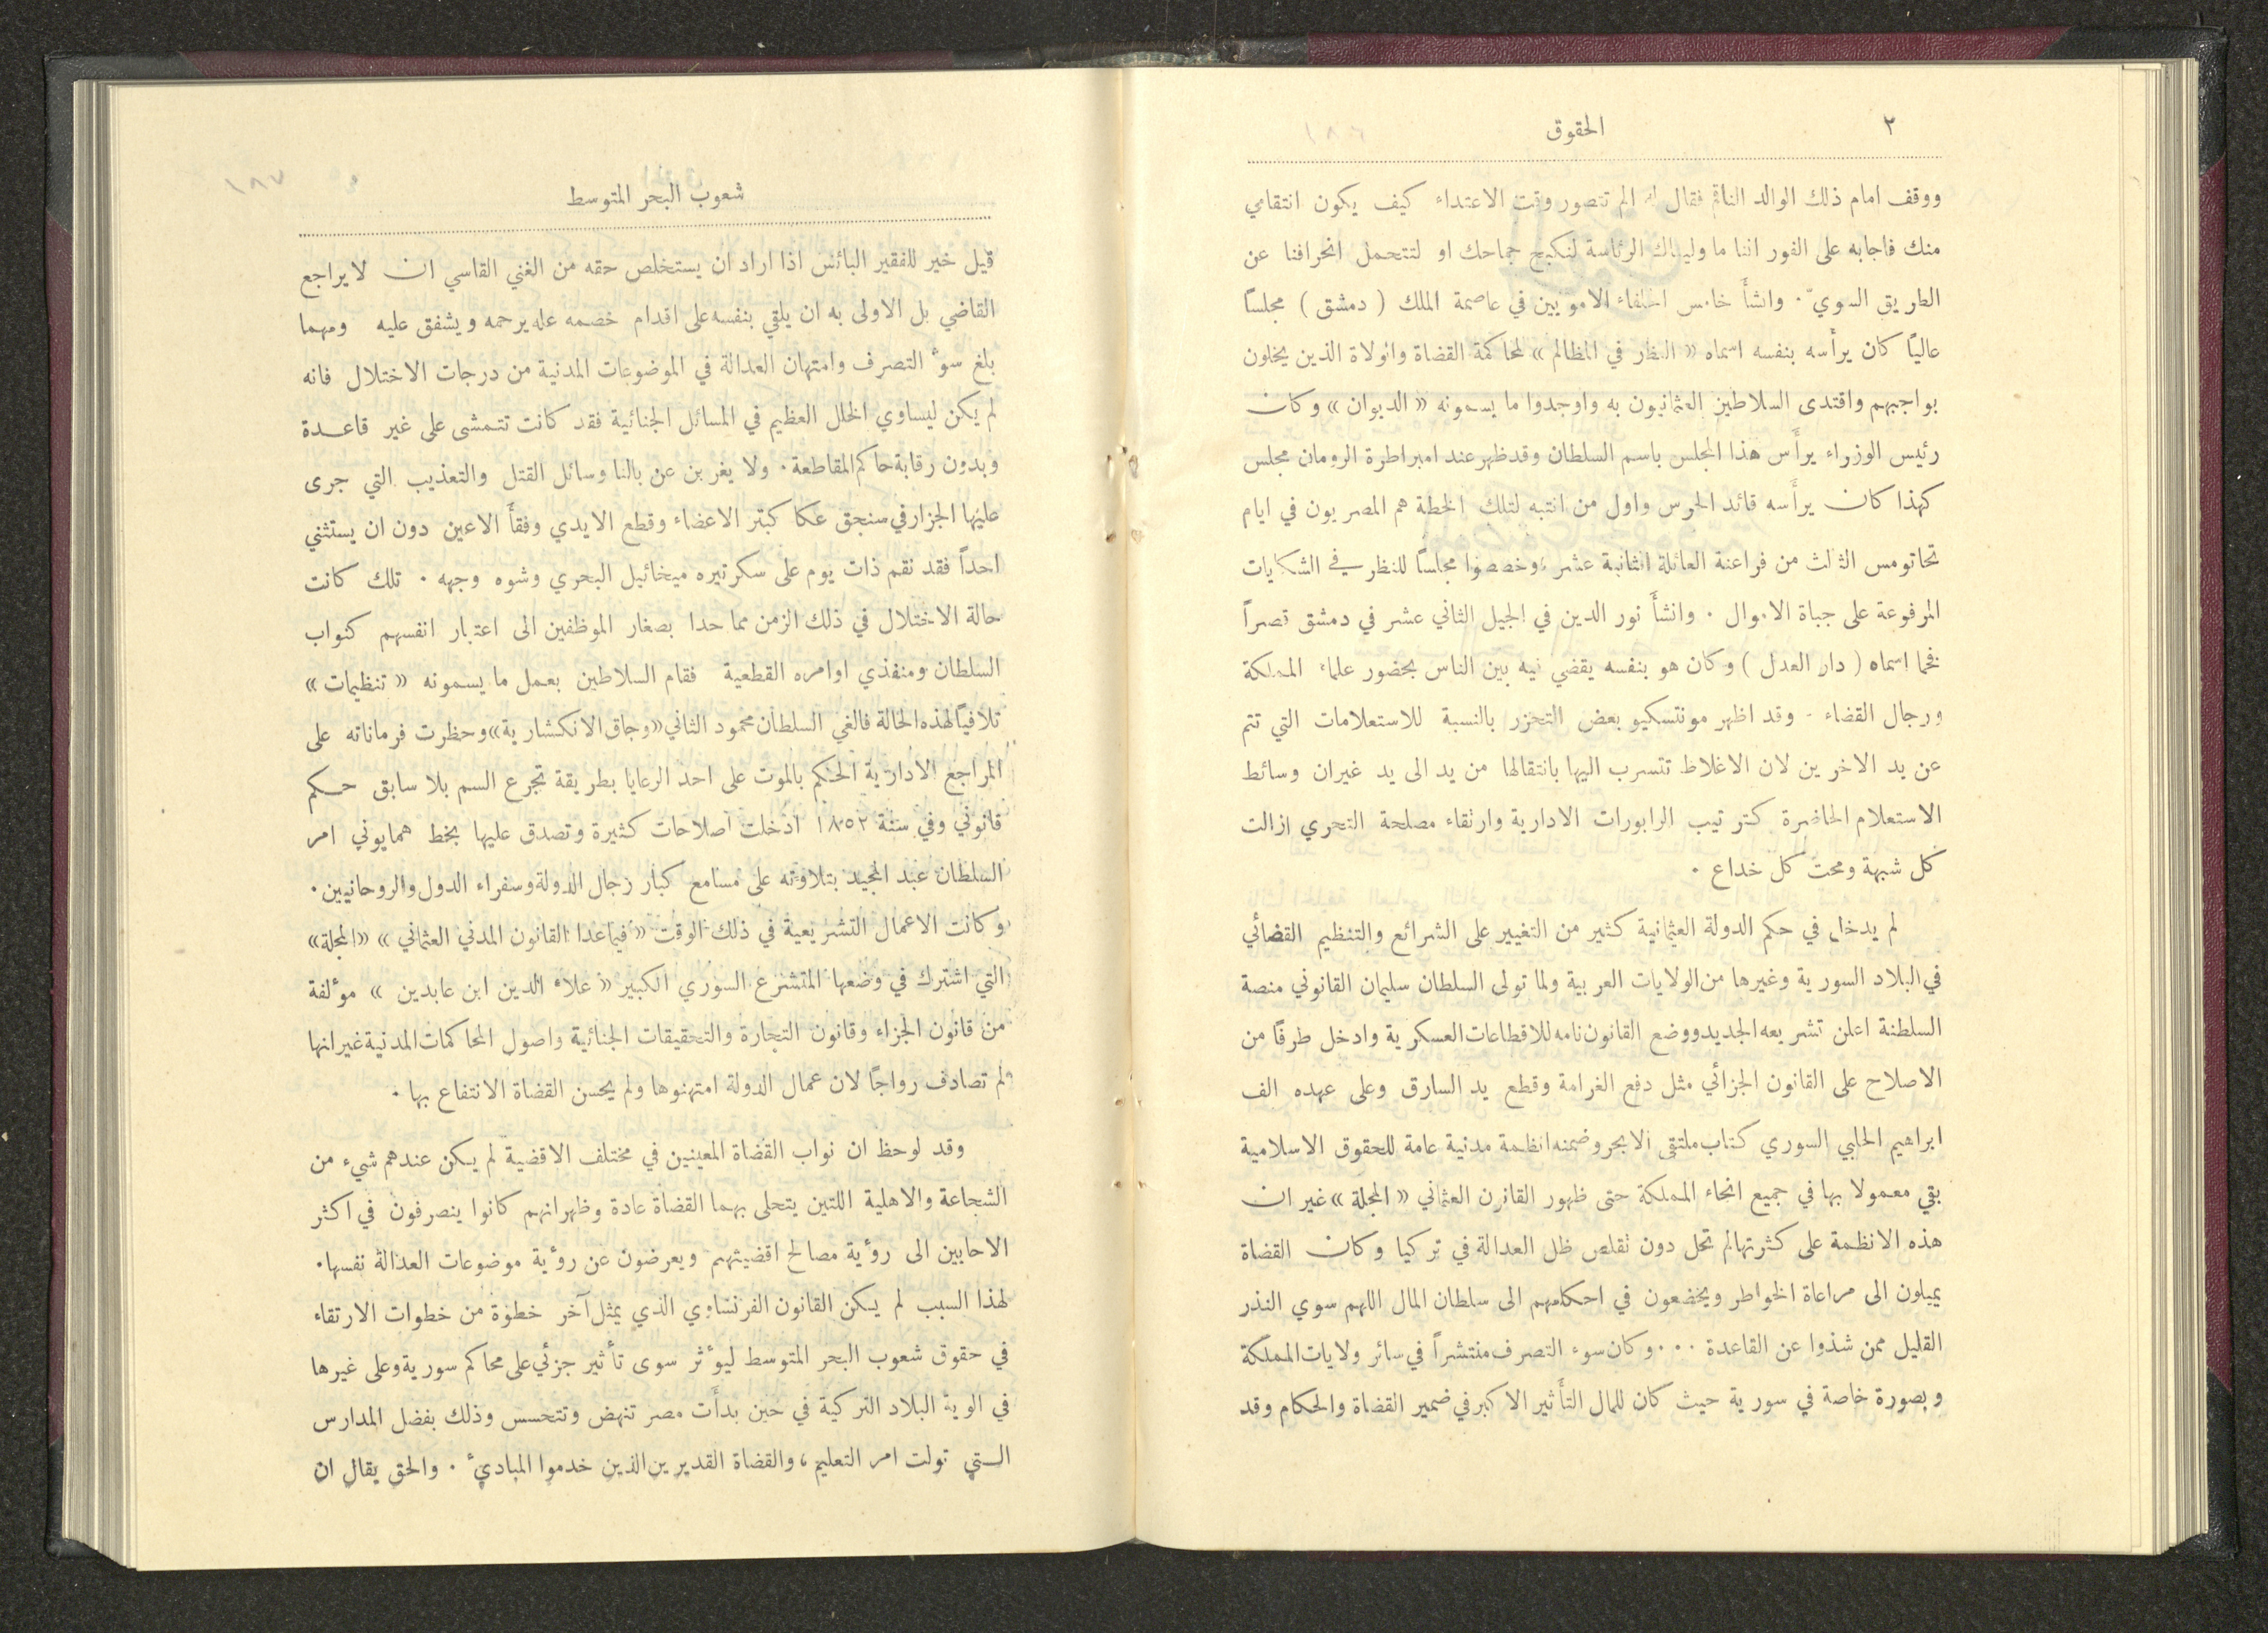 ٢
الحقوق
١٨٦
ووقف امام ذلك الوالد الناقم فقال له الم تتصور وقت الاعتداء كيف يكون انتقامي
منك فاجابه على الفور اننا ما وليناك الرئاسة لنكبح جماحك او لتتحمل انحرافنا عن
الطريق السويّ . وانشأَ خامس الخلفاء الامويين في عاصمة الملك ( دمشق ) مجلسًا
عاليًا كان يرأسه بنفسه اسماه « النظر في المظالم » لمحاكمة القضاة والولاة الذين يخلون
بواجبهم واقتدى السلاطين العثمانيون به واوجدوا ما يسمونه « الديوان » وكان
رئيس الوزراء يرأَس هذا المجلس باسم السلطان وقد ظهر عند امبراطرة الرومان مجلس
كهذا كان يرأَسه قائد الحرس واول من انتبه لتلك الخطة هم المصريون في ايام
تحاتومس الثالث من فراعنة العائلة الثانية عشر وخصصوا مجلسًا للنظر في الشكايات
المرفوعة على جباة الاموال . وانشأَ نور الدين في الجيل الثاني عشر في دمشق قصراً
فخما اسماه ( دار العدل ) وكان هو بنفسه يقضي فيه بين الناس بحضور علماء المملكة
ورجال القضاء . وقد اظهر مونتسكيو بعض التحزر بالنسبة للاستعلامات التي تتم
عن يد الاخرين لان الاغلاط تتسرب اليها بانتقالها من يد الى يد غيران وسائط
الاستعلام الحاضرة كترتيب الرابورات الادارية وارتقاء مصلحة التحري ازالت
كل شبهة ومحت كل خداع .
لم يدخل في حكم الدولة العثمانية كثير من التغيير على الشرائع والتنظيم القضائي
في البلاد السورية وغيرها من الولايات العربية ولما تولى السلطان سليمان القانوني منصة
السلطنة اعلن تشريعه الجديد ووضع القانون نامه للاقطاعات العسكرية وادخل طرفًا من
الاصلاح على القانون الجزائي مثل دفع الغرامة وقطع يد السارق وعلى عهده الف
ابراهيم الحلبي السوري كتاب ملتقى الابحر وضمنه انظمة مدنية عامة للحقوق الاسلامية
بقي معمولا بها في جميع انحاء المملكة حتى ظهور القانون العثماني « المجلة » غير ان
هذه الانظمة على كثرتها لم تحل دون تقلص ظل العدالة في تركيا وكان القضاة
يميلون الى مراعاة الخواطر ويخضعون في احكامهم الى سلطان المال اللهم سوي النذر
القليل ممن شذوا عن القاعدة . . . وكان سوء التصرف منتشراً في سائر ولايات المملكة
وبصورة خاصة في سورية حيث كان للمال التأَثير الاكبر في ضمير القضاة والحكام وقد
شعوب البحر المتوسط
١٨٧
قيل خير للفقير البائس اذا اراد ان يستخلص حقه من الغني القاسي ان لا يراجع
القاضي بل الاولى به ان يلقي بنفسه على اقدام خصمه عله يرحمه ويشفق عليه ومهما
بلغ سوء التصرف وامتهان العدالة في الموضوعات المدنية من درجات الاختلال فانه
لم يكن ليساوي الخلل العظيم في المسائل الجنائية فقد كانت تتمشى على غير قاعدة
وبدون رقابة حاكم المقاطعة . ولا يغربن عن بالنا وسائل القتل والتعذيب التي جرى
عليها الجزار في سنجق عكا كبتر الاعضاء وقطع الايدي وفقأَ الاعين دون ان يستثني
احداً فقد نقم ذات يوم على سكرتيره ميخائيل البحري وشوه وجهه . تلك كانت
حالة الاختلال في ذلك الزمن مما حدا بصغار الموظفين الى اعتبار انفسهم كنواب
السلطان ومنفذي اوامره القطعية فقام السلاطين بعمل ما يسمونه « تنظيمات »
تلافيًا لهذه الحالة فالغي السلطان محمود الثاني « وجاق الانكشارية » وحظرت فرماناته على
المراجع الادارية الحكم بالموت على احد الرعايا بطريقة تجرع السم بلا سابق حكم
قانوني وفي سنة ١٨٥٢ ادخلت اصلاحات كثيرة وتصدق عليها بخط همايوني امر
السلطان عبد المجيد بتلاوته على مسامع كبار رجال الدولة وسفراء الدول والروحانيين .
وكانت الاعمال التشريعية في ذلك الوقت « فيما عدا القانون المدني العثماني » « المجلة »
التي اشترك في وضعها المتشرع السوري الكبير « علاء الدين ابن عابدين » مؤلفة
من قانون الجزاء وقانون التجارة والتحقيقات الجنائية واصول المحاكمات المدنية غير انها
لم تصادف رواجًا لان عمال الدولة امتهنوها ولم يحسن القضاة الانتفاع بها .
وقد لوحظ ان نواب القضاة المعينين في مختلف الاقضية لم يكن عندهم شيء من
الشجاعة والاهلية اللتين يتحلى بهما القضاة عادة وظهر انهم كانوا ينصرفون في اكثر
الاحايين الى رؤية مصالح اقضيتهم ويعرضون عن رؤية موضوعات العدالة نفسها .
لهذا السبب لم يكن القانون الفرنساوي الذي يمثل آخر خطوة من خطوات الارتقاء
في حقوق شعوب البحر المتوسط ليؤثر سوى تأثير جزئي على محاكم سورية وعلى غيرها
في الوية البلاد التركية في حين بدأَت مصر تنهض وتتحسس وذلك بفضل المدارس
التي تولت امر التعليم ، والقضاة القديرين الذين خدموا المبادئ . والحق يقال ان